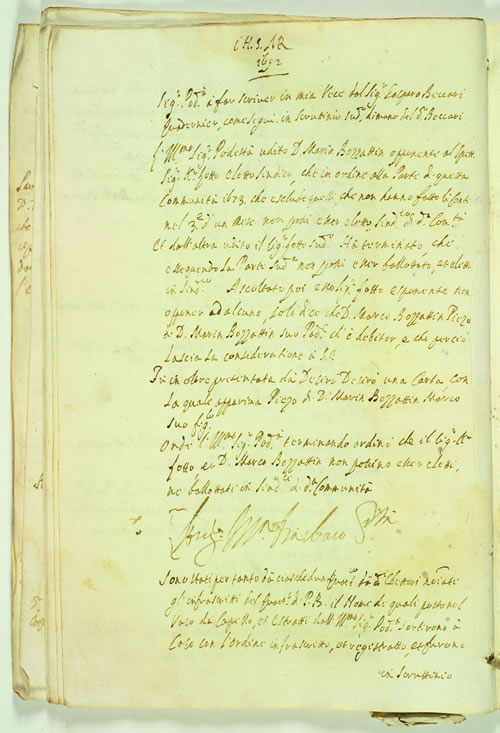 1692
Sig.r Pod.à à far scriver in mia Vece dal Sig.r Gasparo Beccari
Quadernier, come segue in scrutinio sud.o di mano del S.r Beccari
Ill.mo Sig.r Podestà udito D. Mario Bozzattin opponente al
Sig.r fotto eletto Sindico, che in ordine alla Parte di questa
Communità 1673 che esclude quelli, che non hanno fatto li Conti
nel d'un Mese non possi esser eletto Sind.co di d.a Com.tà
Et dall'altra udito il Sig.r fotto sud.o Hà terminato che
essequendo la Parte Sud.a non possi esser ballottato, et eletto
in Sind.co Ascoltato poi esso Sig.r fotto esponente non
opponer ad alcuno, solo dice che D. Marco Bozzattin Piezo
di D. Marin Bozzattin suo Pad.e ch'è debitor, e che perciò
lascia la consideratione à S.E.
Fù in oltre presentata da Desirò Desirò una Carta, con
la quale appariva Piezo di D. Marin Bozzattin Marco
suo fig.lo
Onde l'Ill.mo Sig.r Pod.à terminando ordinò che il Sig.r
fotto et D. Marco Bozzattin non possino esser eletti,
ne ballottati in Sind.ci di d.a Communità
Sono stati per tanto da ciaschedun di d.i Elettori nominati
gl'infrascritti del P.B. il Nome de quali posto nel
Vaso da Capello, et estratti dall'Ill.mo Sig.r Pod.à sortirono à
Caso con l'ordine infrascritto, et registratto, et furono
in Scruttinio